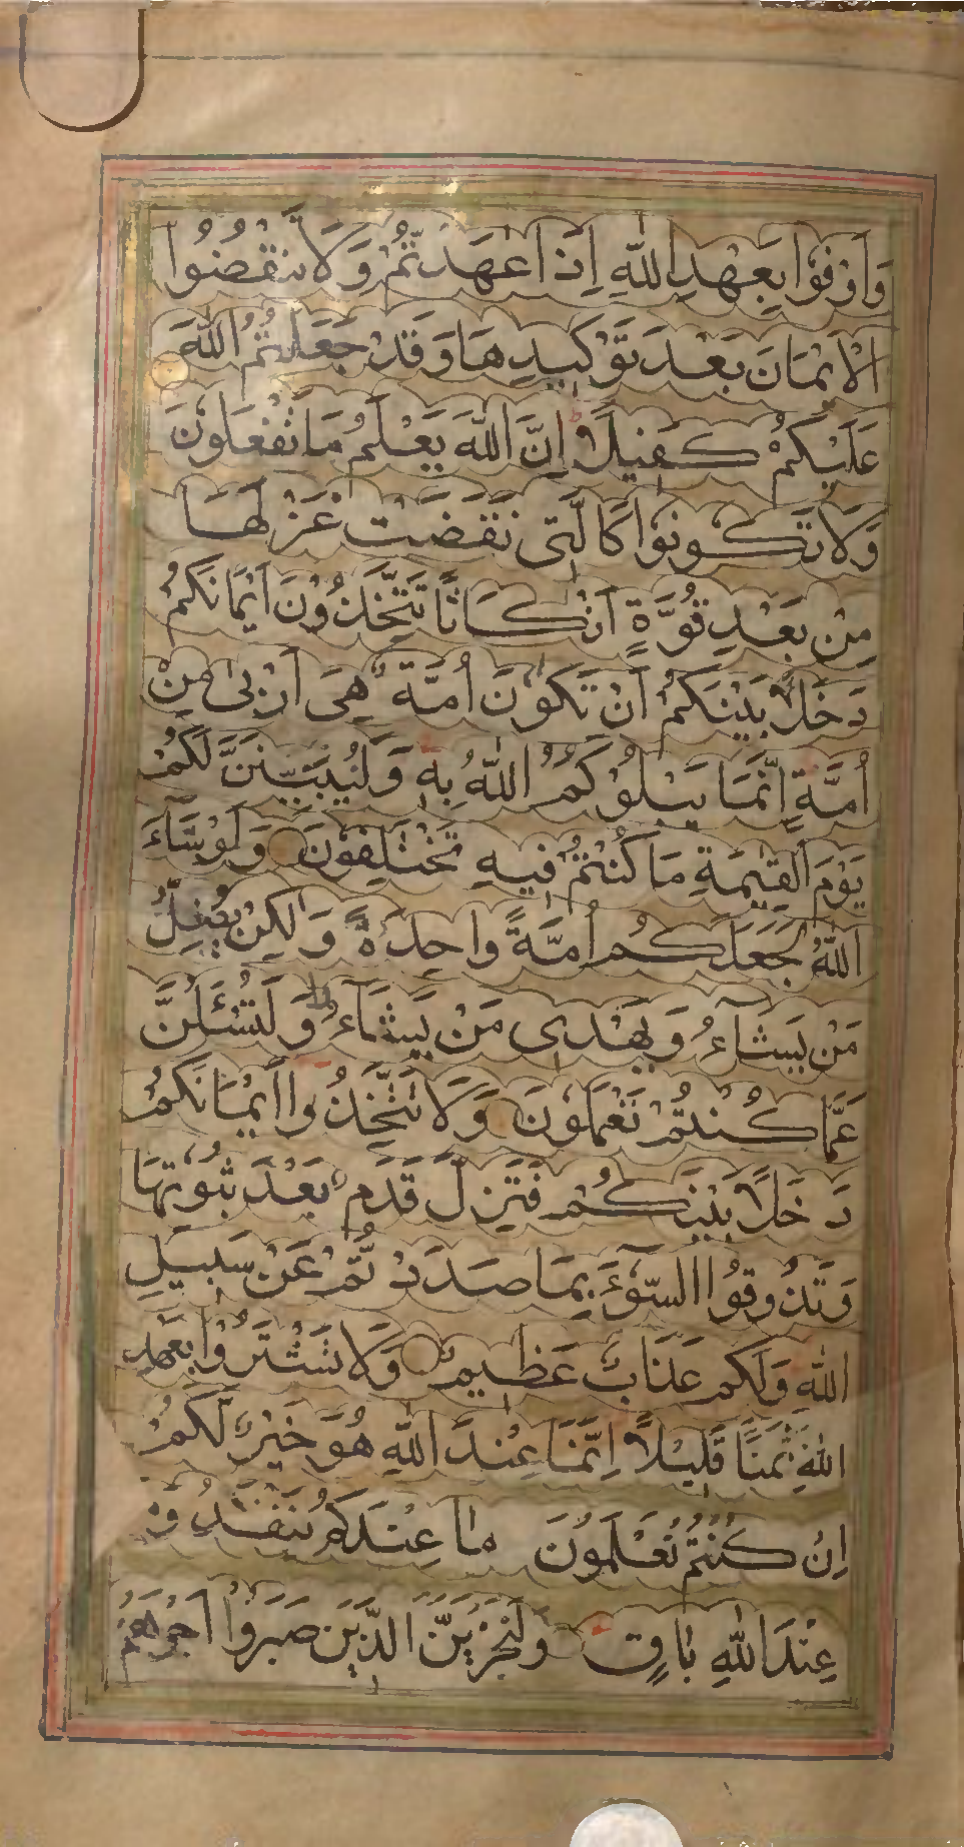 وَاَوْفُوْا بِعَهْدِ اللّٰهِ اِذَا عٰهَدْتُّمْ وَلَا تَنْقُضُوا
الْاَيْمَانَ بَعْدَ تَوْكِيْدِهَا وَقَدْ جَعَلْتُمُ اللّٰهَ
عَلَيْكُمْ كَفِيْلًا اِنَّ اللّٰهَ يَعْلَمُ مَا تَفْعَلُوْنَ
وَلَا تَكُوْنُوْا كَالَّتِىْ نَقَضَتْ غَزْلَهَا
مِنْ بَعْدِ قُوَّةٍ اَنْكَاثًا تَتَّخِذُوْنَ اَيْمَانَكُمْ
دَخَلًا بَيْنَكُمْ اَنْ تَكُوْنَ اُمَّةٌ هِىَ اَرْبٰى مِنْ
اُمَّةٍ اِنَّمَا يَبْلُوْكُمُ اللّٰهُ بِهٖ وَلَيُبَيِّنَنَّ لَكُمْ
يَوْمَ الْقِيٰمَةِ مَا كُنْتُمْ فِيْهِ تَخْتَلِفُوْنَ وَلَوْ شَآءَ
اللّٰهُ لَجَعَلَكُمْ اُمَّةً وَاحِدَةً وَلٰكِنْ يُضِلُّ
مَنْ يَشَآءُ وَيَهْدِى مَنْ يَشَآءُ وَلَتُسْئَلُنَّ
عَمَّا كُنْتُمْ تَعْمَلُوْنَ وَلَا تَتَّخِذُوْا اَيْمَانَكُمْ
دَخَلًا بَيْنَكُمْ فَتَزِلَّ قَدَمٌ بَعْدَ ثُبُوْتِهَا
وَتَذُوْقُوا السُّوْٓءَ بِمَا صَدَدْتُّمْ عَنْ سَبِيْلِ
اللّٰهِ وَلَكُمْ عَذَابٌ عَظِيْمٌ وَلَا تَشْتَرُوْا بِعَهْدِ
اللّٰهِ ثَمَنًا قَلِيْلًا اِنَّمَا عِنْدَ اللّٰهِ هُوَ خَيْرٌ لَّكُمْ
اِنْ كُنْتُمْ تَعْلَمُوْنَ مَا عِنْدَكُمْ يَنْفَدُ وَ
عِنْدَ اللّٰهِ بَاقٍ وَلَنَجْزِيَنَّ الَّذِيْنَ صَبَرُوْا اَجْرَهُمْ